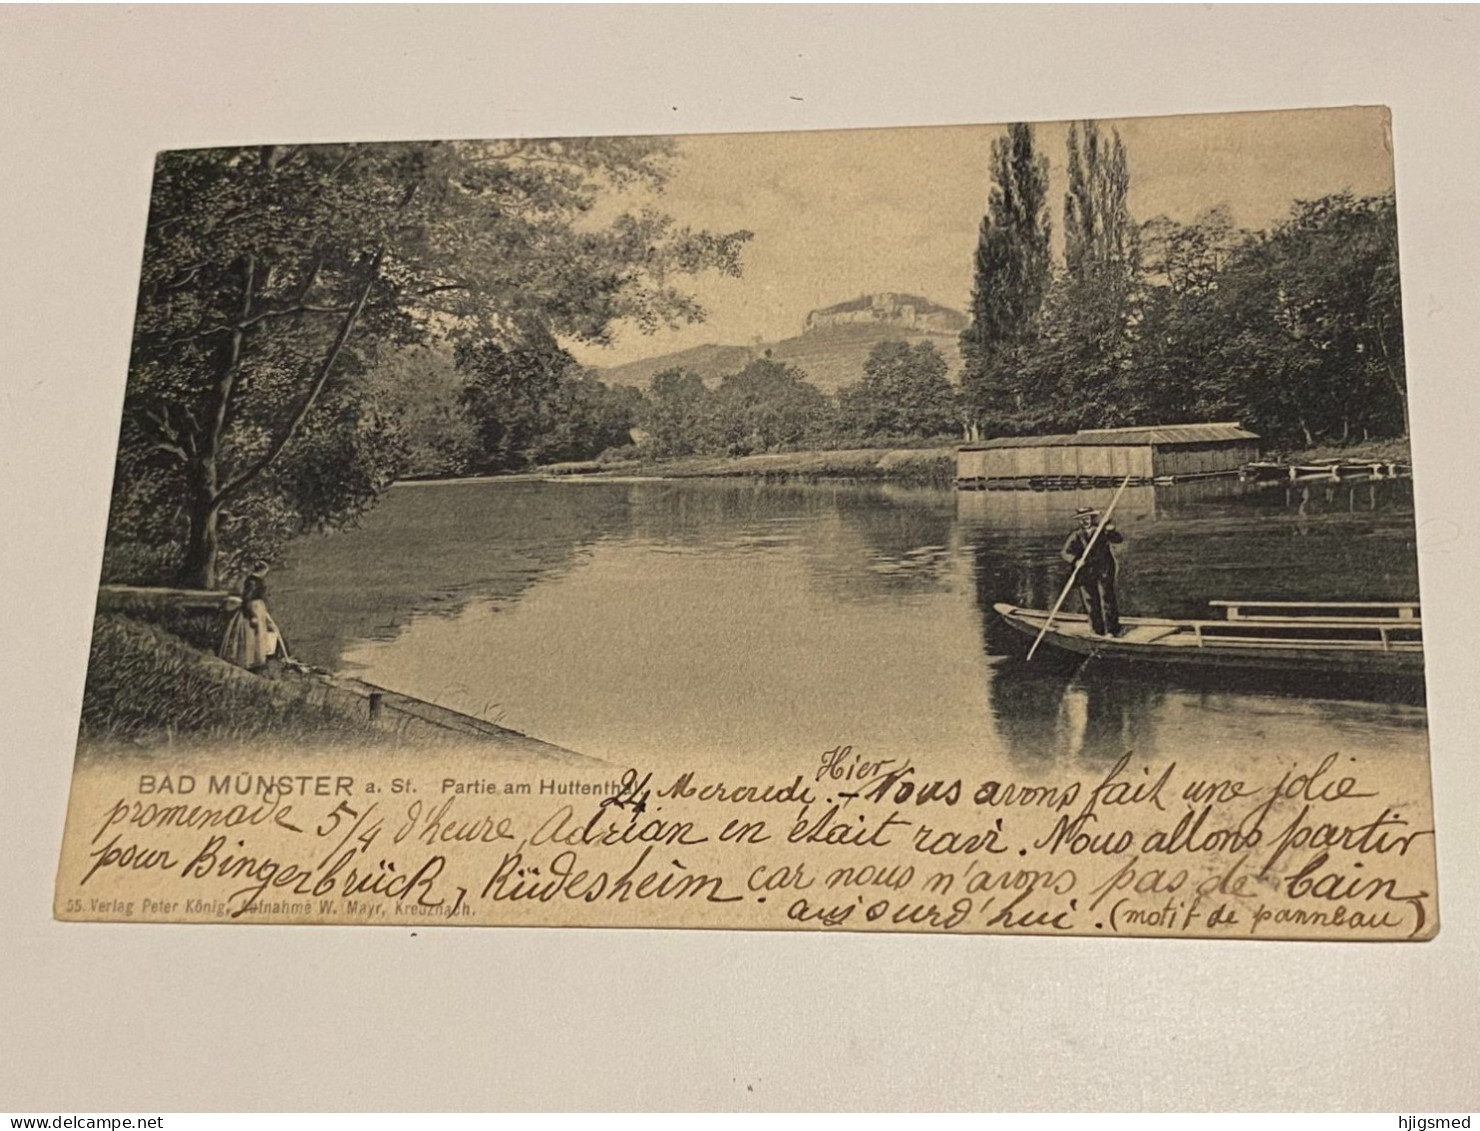 Hier
BAD MÜNSTER a. St. Partie am Huttenthal Mercredi. - Nous avons fait une jolie
promenade 5/4 d'heure, Adrian en était ravi. Nous allons partir
pour Bingerbrück, Rüdesheim car nous n'avons pas de bain
55. Verlag Peter König, Aufnahme W. Mayr, Kreuznach. aujourd'hui. (motif de panneau)
hjigsmed